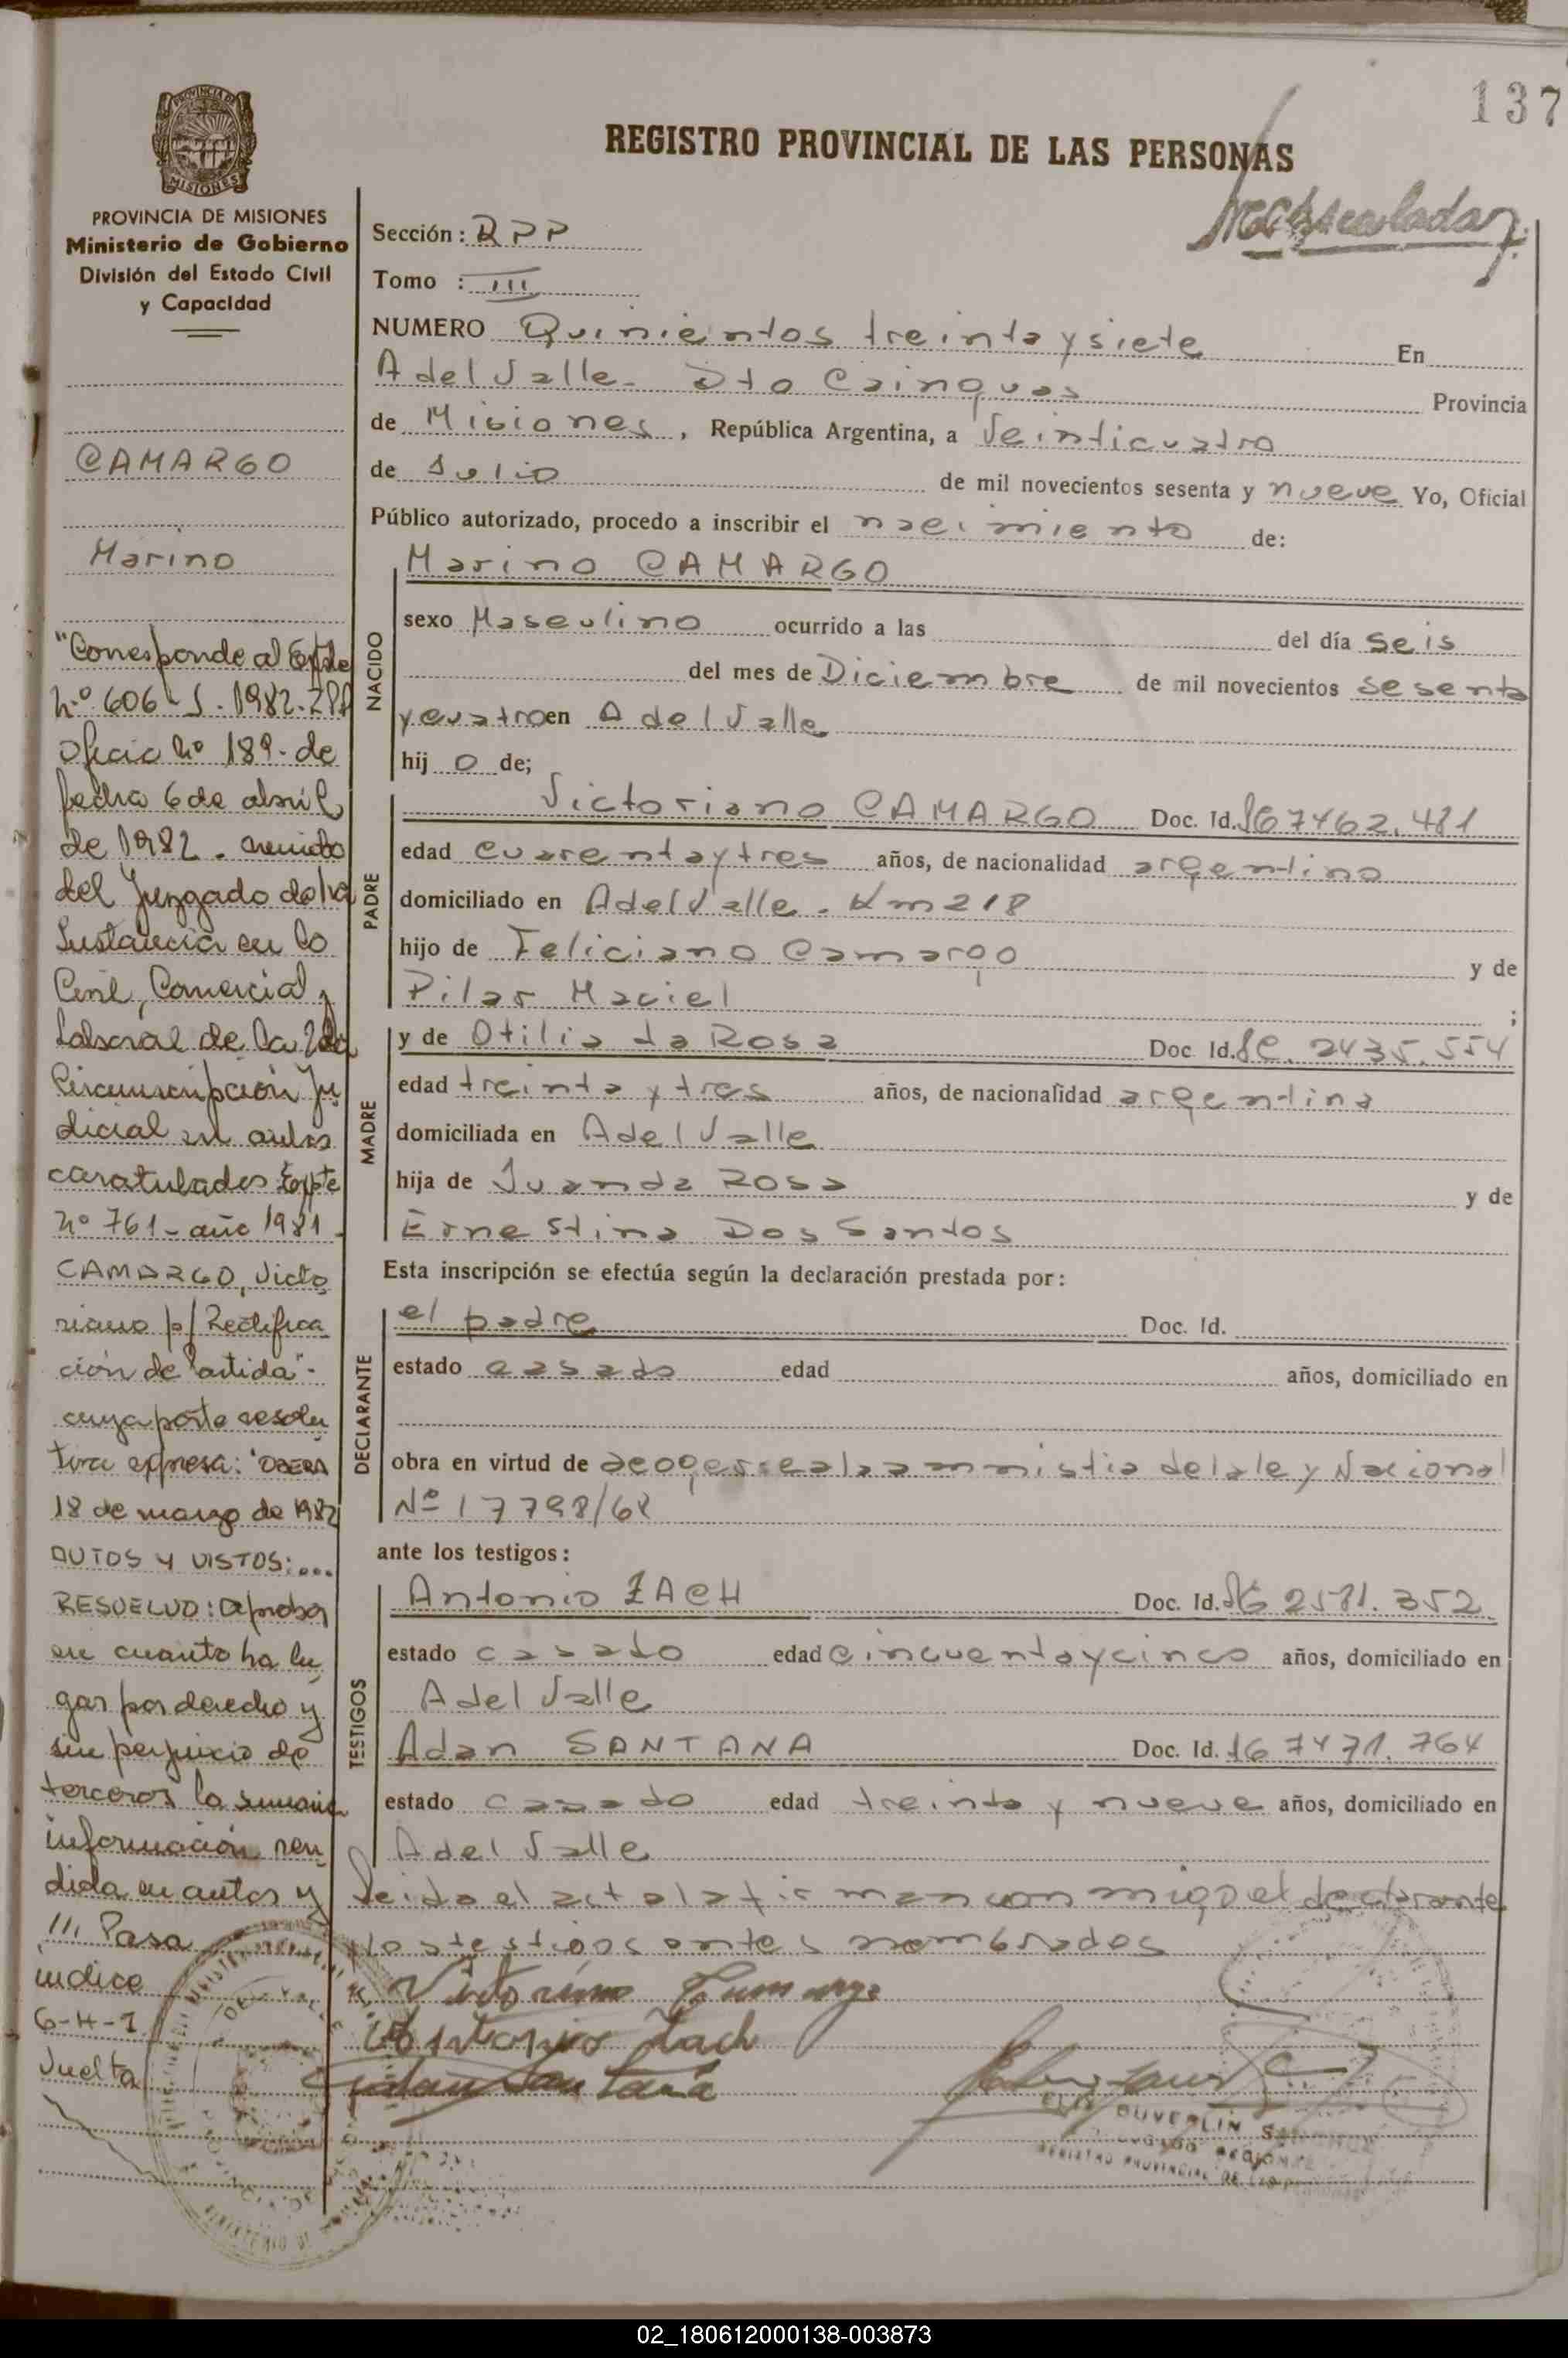 137
REGISTRO PROVINCIAL DE LAS PERSONAS
PROVINCIA DE MISIONES
Ministerio de Gobierno
División del Estado Civil
y Capacidad
CAMARGO
Marino
"Corresponde al Expte
Nº 606-S-1982-RPP
Oficio Nº 189- de
fecha 6 de abril
de 1982. remitido
del Juzgado de 1ra
Instancia en lo
Civil, Comercial y
Laboral de la 2da
Circunscripción Ju
dicial en autos
caratulados Expte
Nº 761- año 1981-
CAMARGO, Victo
riano p/ Rectifica
ción de Partida"-
cuya parte resolu
tiva expresa: "OBERA
18 de marzo de 1982
AUTOS Y VISTOS:...
RESUELVO: Aprobar
en cuanto ha lu
gar por derecho y
sin perjuicio de
terceros la sumaria
información ren
dida en autos y
/// Pasa
indice
6-H-1
Vuelta
Sección: RPP
Tomo : III
NUMERO Quinientos treinta y siete En
A del Valle- Dto Cainguas Provincia
de Misiones, República Argentina, a Veinticuatro
de Julio de mil novecientos sesenta y nueve Yo, Oficial
Público autorizado, procedo a inscribir el nacimiento de:
NACIDO
Marino CAMARGO
sexo Masculino ocurrido a las del día seis
del mes de Diciembre de mil novecientos sesenta
y cuatro en A del Valle
hij o de;
PADRE
Victoriano CAMARGO Doc. Id. 7462.481
edad cuarenta y tres años, de nacionalidad argentino
domiciliado en A del Valle. Km 218
hijo de Feliciano Camargo y de
Pilar Maciel ;
MADRE
y de Otilia da Rosa Doc Id. LC. 2435.554
edad treinta y tres años, de nacionalidad argentina
domiciliada en A del Valle
hija de Juan da Rosa y de
Ernestina Dos Santos
Esta inscripción se efectúa según la declaración prestada por:
DECLARANTE
el padre Doc. Id.
estado casado edad años, domiciliado en
obra en virtud de acogerse a la amnistia de la ley Nacional
Nº 17798/68
ante los testigos:
TESTIGOS
Antonio ZACH Doc. Id. 2581.352
estado casado edad cincuenta y cinco años, domiciliado en
A del Valle
Adan SANTANA Doc. Id. 7471.764
estado casado edad treinta y nueve años, domiciliado en
A del Valle
Leida el acta la firman conmigo el declarante
y los testigos antes nombrados
Antonio Zach
02_180612000138-003873